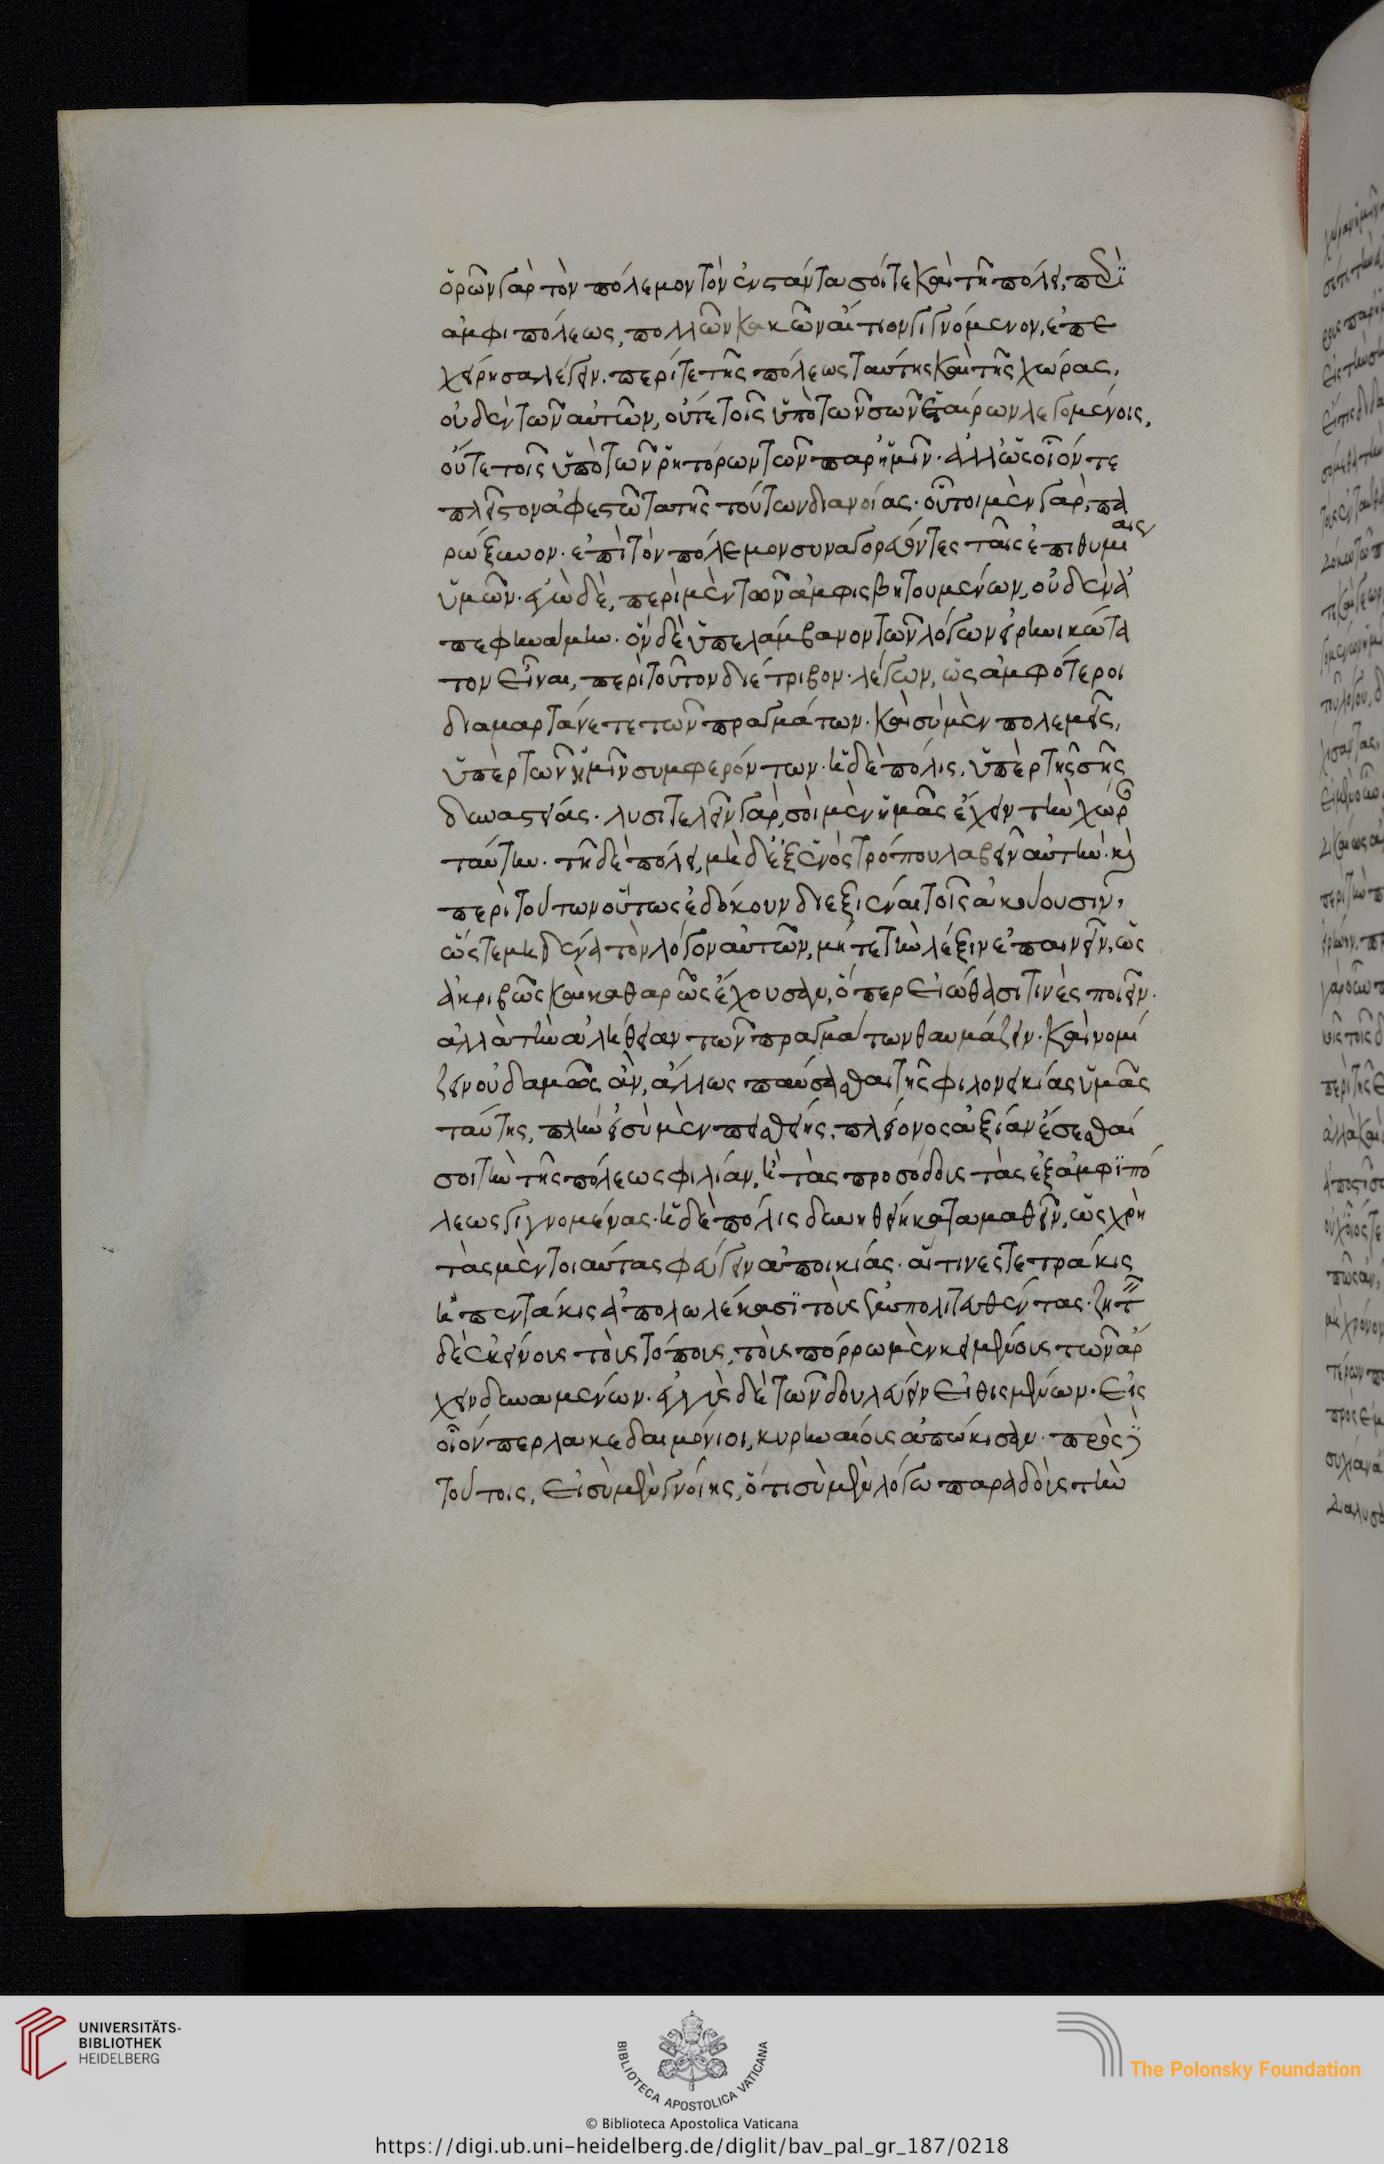 ὁρῶν γὰρ τὸν πόλεμον τὸν ἐνστάντα σοί τε καὶ τῆ πόλει, περὶ
ἀμφιπόλεως, πολλῶν κακῶν αἴτιον γιγνόμενον, ἐπε
χείρησα λέγειν. περί τε τῆς πόλεως ταύτης καὶ τῆς χώρας,
οὐδὲν τῶν αὐτῶν, οὔτε τοῖς ὑπὸ τῶν σῶν ἑταίρων λεγομένοις,
οὔτε τοῖς ὑπὸ τῶν ῥητόρων τῶν παρ' ἡμῖν· ἀλλ' ὡς οἷόν τε
πλεῖστον ἀφεστῶτα τῆς τούτων διανοίας· οὗτοι μὲν γὰρ, πα
ρώξυνον· ἐπὶ τὸν πόλεμον συναγορεύοντες ταῖς ἐπιθυμίαις
ὑμῶν· ἐγὼ δὲ, περὶ μὲν τῶν ἀμφισβητουμένων, οὐδὲν ἀ
πεφηνάμην· ὃν δὲ ὑπελάμβανον τῶν λόγων εἰρηνικώτα
τον εἶναι, περὶ τοῦτον διέτριβον· λέγων, ὡς ἀμφότεροι
διαμαρτάνετε τῶν πραγμάτων· καὶ σὺ μὲν πολεμεῖς,
ὑπὲρ τῶν ἡμῖν συμφερόντων· ἡ δὲ πόλις, ὑπὲρ τῆς σῆς
δυναστείας· λυσιτελεῖν γὰρ, σοὶ μὲν ἡμᾶς ἔχειν τὴν χώραν
ταύτην· τῆ δὲ πόλει, μὴ δ' ἐξ ἑνὸς τρόπου λαβεῖν αὐτήν· καὶ
περὶ τούτων οὕτως ἐδόκουν διεξιέναι τοῖς ἀκούουσιν,
ὥστε μηδένα τὸν λόγον αὐτῶν, μήτε τὴν λέξιν ἐπαινεῖν, ὡς
ἀκριβῶς καὶ καθαρῶς ἔχουσαν, ὅπερ εἰώθασι τινὲς ποιεῖν·
ἀλλὰ τὴν ἀλήθειαν τῶν πραγμάτων θαυμάζειν· καὶ νομί
ζειν οὐδαμῶς ἂν, ἄλλως παύσασθαι τῆς φιλονεικίας ὑμᾶς
ταύτης, πλὴν εἰ σὺ μὲν πεισθείης, πλείονος ἀξίαν ἔσεσθαί
σοι τὴν τῆς πόλεως φιλίαν, ἢ τὰς προσόδους τὰς ἐξ ἀμφιπό
λεως γιγνομένας· ἡ δὲ πόλις δυνηθείη καταμαθεῖν, ὡς χρὴ
τὰς μὲν τοιαύτας φεύγειν ἀποικίας· αἵτινες τετράκις
ἢ πεντάκις ἀπολωλέκασι τοὺς ἐμπολιτευθέντας· ζητεῖν
δὲ ἐκείνους τοὺς τόπους, τοὺς πόρρω μὲν κειμένους τῶν ἄρ
χειν δυναμένων· ἐγγὺς δὲ τῶν δουλεύειν εἰθισμένων· εἰς
οἷόν περ λακεδαιμόνιοι, κυρηναίους ἀπώκισαν· πρὸς δὲ
τούτοις, εἰ σὺ μὲν γνοίης, ὅτι σὺ μὲν λόγω παραδοὺς τὴν
UNIVERSITÄTS-
BIBLIOTHEK
HEIDELBERG
BIBLIOTECA APOSTOLICA VATICANA
The Polonsky Foundation
© Biblioteca Apostolica Vaticana
https://digi.ub.uni-heidelberg.de/diglit/bav_pal_gr_187/0218